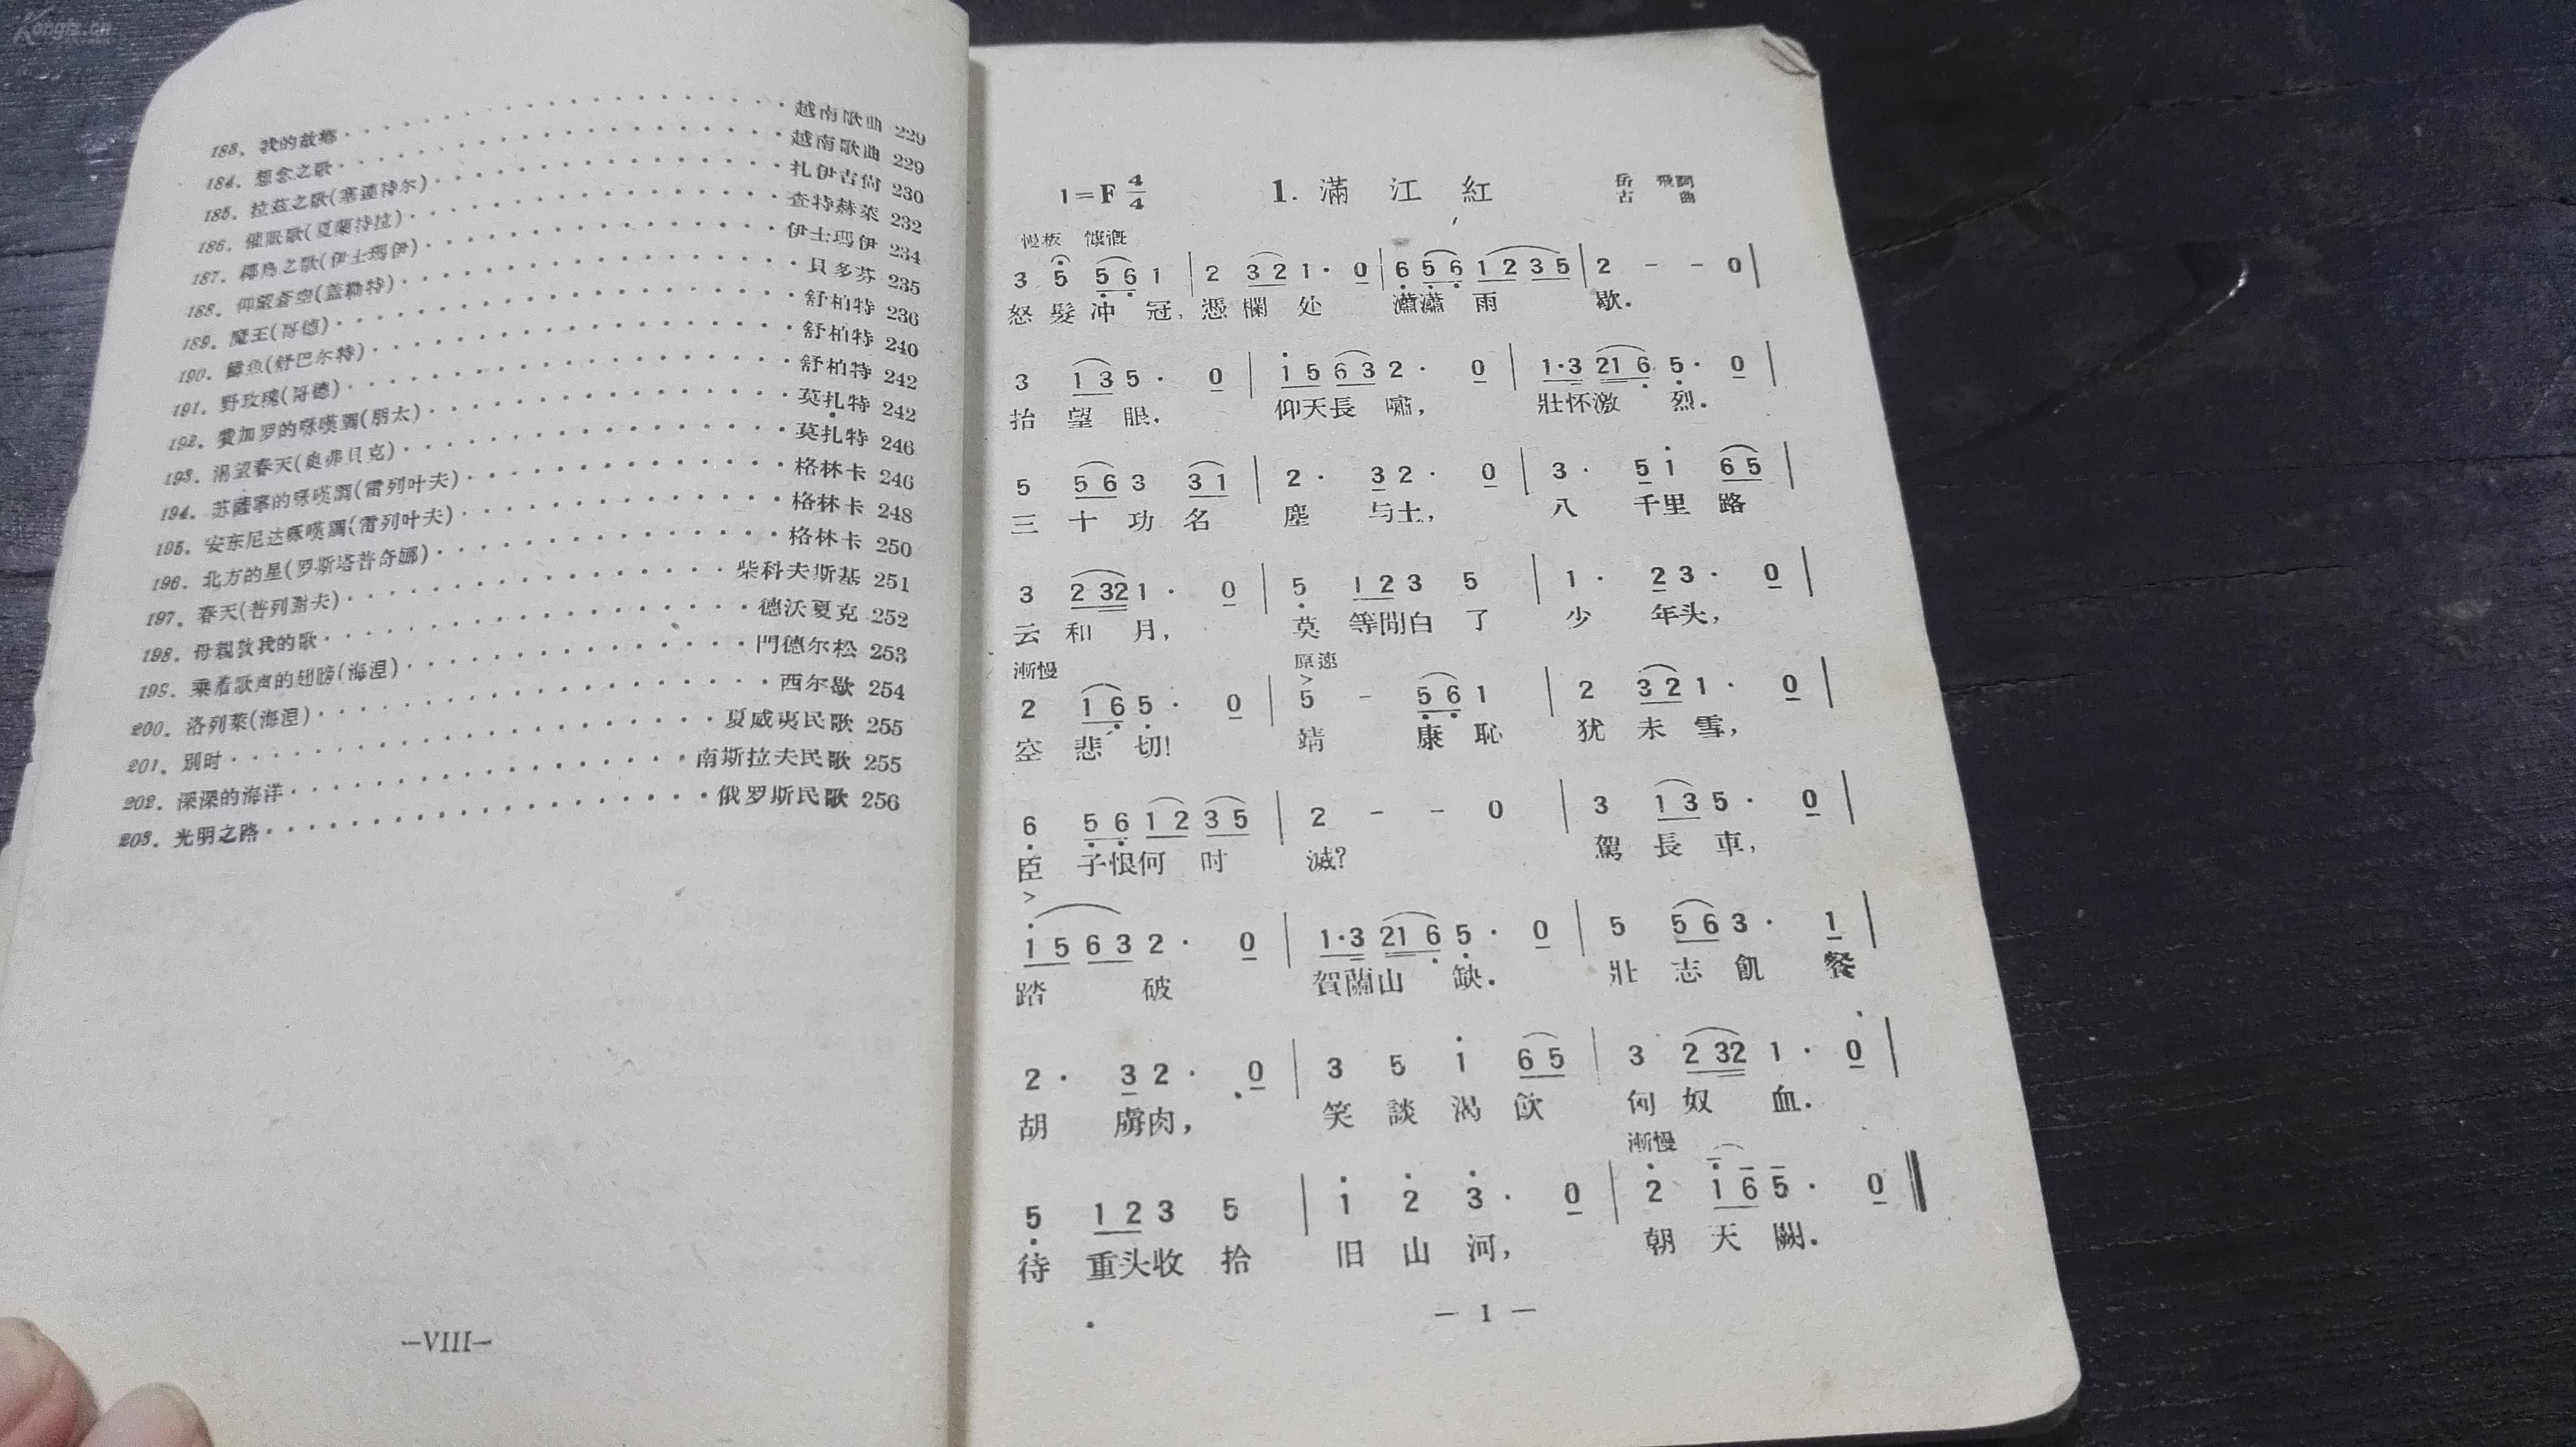 Kongfz.cn
183. 我的故鄉 · · · · · · 越南歌曲 229
184. 想念之歌 · · · · · · 越南歌曲 229
185. 拉茲之歌(塞達特尔) · · · · · · 扎伊吉尙 230
186. 催眠歌(夏蘭特拉) · · · · · · 查特赫萊 232
187. 椰島之歌(伊士瑪伊) · · · · · · 伊士瑪伊 234
188. 仰望蒼空(盖勒特) · · · · · · 貝多芬 235
189. 魔王(哥德) · · · · · · 舒柏特 236
190. 鱒魚(舒巴尔特) · · · · · · 舒柏特 240
191. 野玫瑰(哥德) · · · · · · 舒柏特 242
192. 費加罗的咏嘆調(朋太) · · · · · · 莫扎特 242
193. 渴望春天(奥弗貝克) · · · · · · 莫扎特 246
194. 苏薩寧的咏嘆調(雷列叶夫) · · · · · · 格林卡 246
195. 安东尼达咏嘆調(雷列叶夫) · · · · · · 格林卡 248
196. 北方的星(罗斯塔普奇娜) · · · · · · 格林卡 250
197. 春天(普列謝夫) · · · · · · 柴科夫斯基 251
198. 母親敎我的歌 · · · · · · 德沃夏克 252
199. 乘着歌声的翅膀(海涅) · · · · · · 門德尔松 253
200. 洛列萊(海涅) · · · · · · 西尔歇 254
201. 別时 · · · · · · 夏威夷民歌 255
202. 深深的海洋 · · · · · · 南斯拉夫民歌 255
203. 光明之路 · · · · · · 俄罗斯民歌 256
—VIII—
1=F 4/4 1. 滿 江 紅 岳 飛詞
古 曲
慢板 慷慨
3 5 5 6 1 | 2 3 2 1 · 0 | 6 5 6 1 2 3 5 | 2 - - 0 |
怒 髮 冲 冠, 憑 欄 处 瀟瀟 雨 歇.
3 1 3 5 · 0 | 1 5 6 3 2 · 0 | 1·3 21 6 5 · 0 |
抬 望 眼. 仰天長 嘯, 壯怀激 烈.
5 5 6 3 3 1 | 2 · 3 2 · 0 | 3 · 5 1 6 5 |
三 十 功 名 塵 与土, 八 千里 路
3 2 32 1 · 0 | 5 1 2 3 5 | 1 · 2 3 · 0 |
云 和 月, 莫 等閒白 了 少 年头,
漸慢 原速
2 1 6 5 · 0 | 5 - 5 6 1 | 2 3 2 1 · 0 |
空 悲 切! 靖 康 恥 犹 未 雪,
6 5 6 1 2 3 5 | 2 - - 0 | 3 1 3 5 · 0 |
臣 子恨何 时 滅? 駕 長 車,
1 5 6 3 2 · 0 | 1·3 21 6 5 · 0 | 5 5 6 3 · 1 |
踏 破 賀蘭山 缺. 壯 志 飢 餐
2 · 3 2 · 0 | 3 5 1 6 5 | 3 2 32 1 · 0 |
胡 虜肉, 笑 談 渴 飮 匈 奴 血.
漸慢
5 1 2 3 5 | 1 2 3 · 0 | 2 1 6 5 · 0 ‖
待 重头收 拾 旧 山 河, 朝 天 闕.
— 1 —